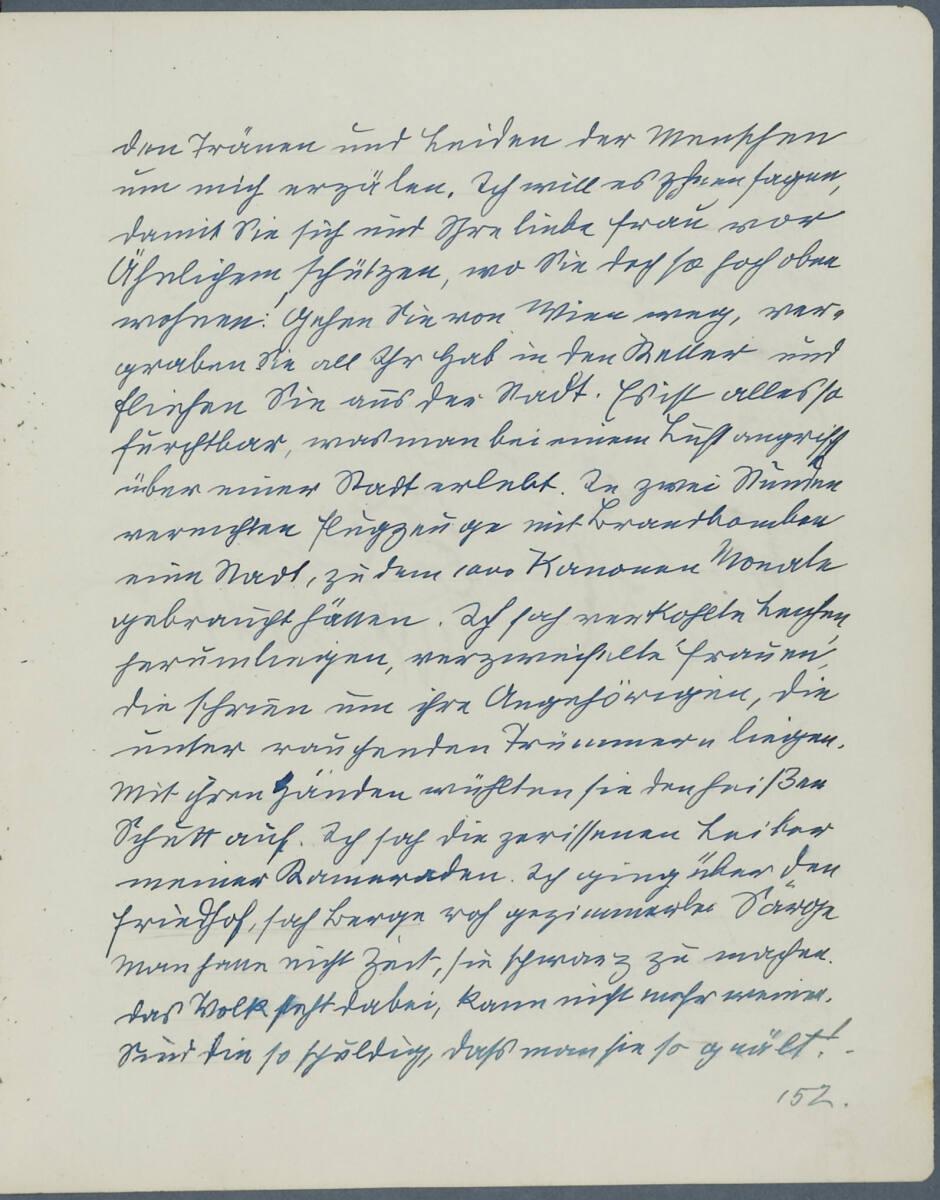 den Tränen und Leiden der Menschen
um mich erzälen. Ich will es Ihnen sagen,
damit Sie sich und Ihre liebe Frau vor
Ähnlichem schützen, wo Sie doch so hoch oben
wohnen! Gehen Sie von Wien weg, ver-
graben Sie all Ihr Hab in den Keller und
fliehen Sie aus der Stadt. Es ist alles so
furchtbar, was man bei einem Luftangriff
über einer Stadt erlebt. In zwei Stunden
vernichten Flugzeuge mit Brandbomben
eine Stadt, zu dem 1000 Kanonen Monate
gebraucht hätten. Ich sah verkohlte Leichen
herumliegen, verzweifelte Frauen,
die schrien um ihre Angehörigen, die
unter rauchenden Trümmern liegen.
Mit ihren Händen wühlten sie den heißen
Schutt auf. Ich sah die zerissenen Leiber
meiner Kameraden. Ich ging über den
Friedhof, sah Berge roh gezimmerter Särge
Man hatte nicht Zeit, sie schwarz zu machen.
das Volk steht dabei, kann nicht mehr weinen.
Sind die so schuldig, dass man sie so quält! -
152.